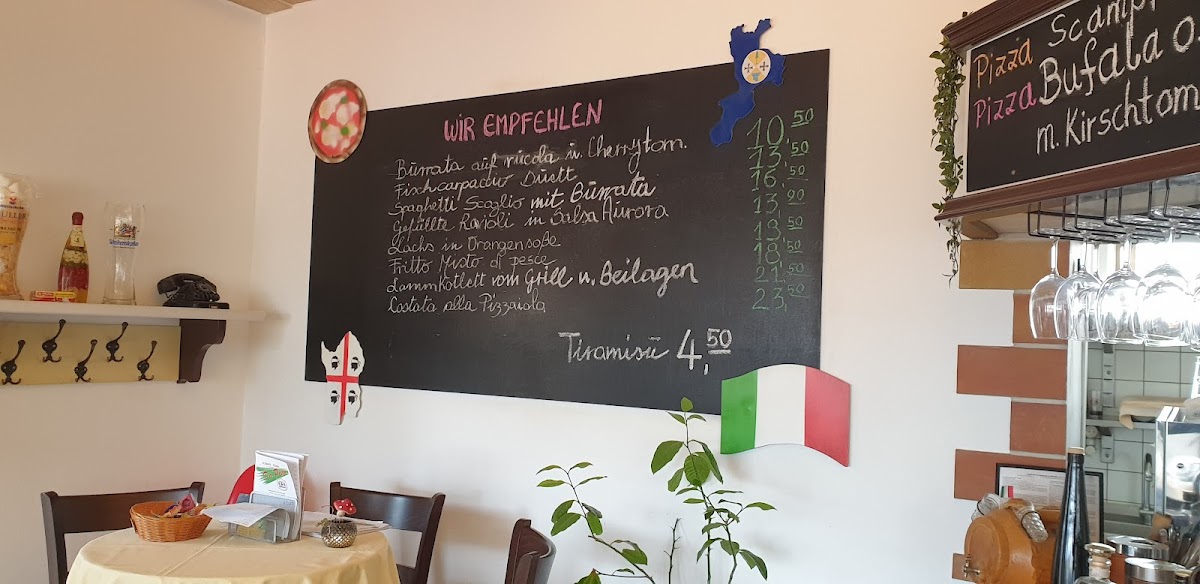 WIR EMPFEHLEN
Burrata auf rucola u. Cherrytom. 10,50
Fischcarpaccio Duett 13,50
Spaghetti Scoglio mit Burrata 16,50
Gefüllte Ravioli in Salsa Aurora 13,90
Lachs in Orangensoße 19,50
Fritto Misto di pesce 18,50
Lammkotlett vom Grill u. Beilagen 21,50
Costata alla Pizzaiola 23,50
Tiramisü 4,50
Pizza Scampi
Pizza Bufala o.
m. Kirschtom